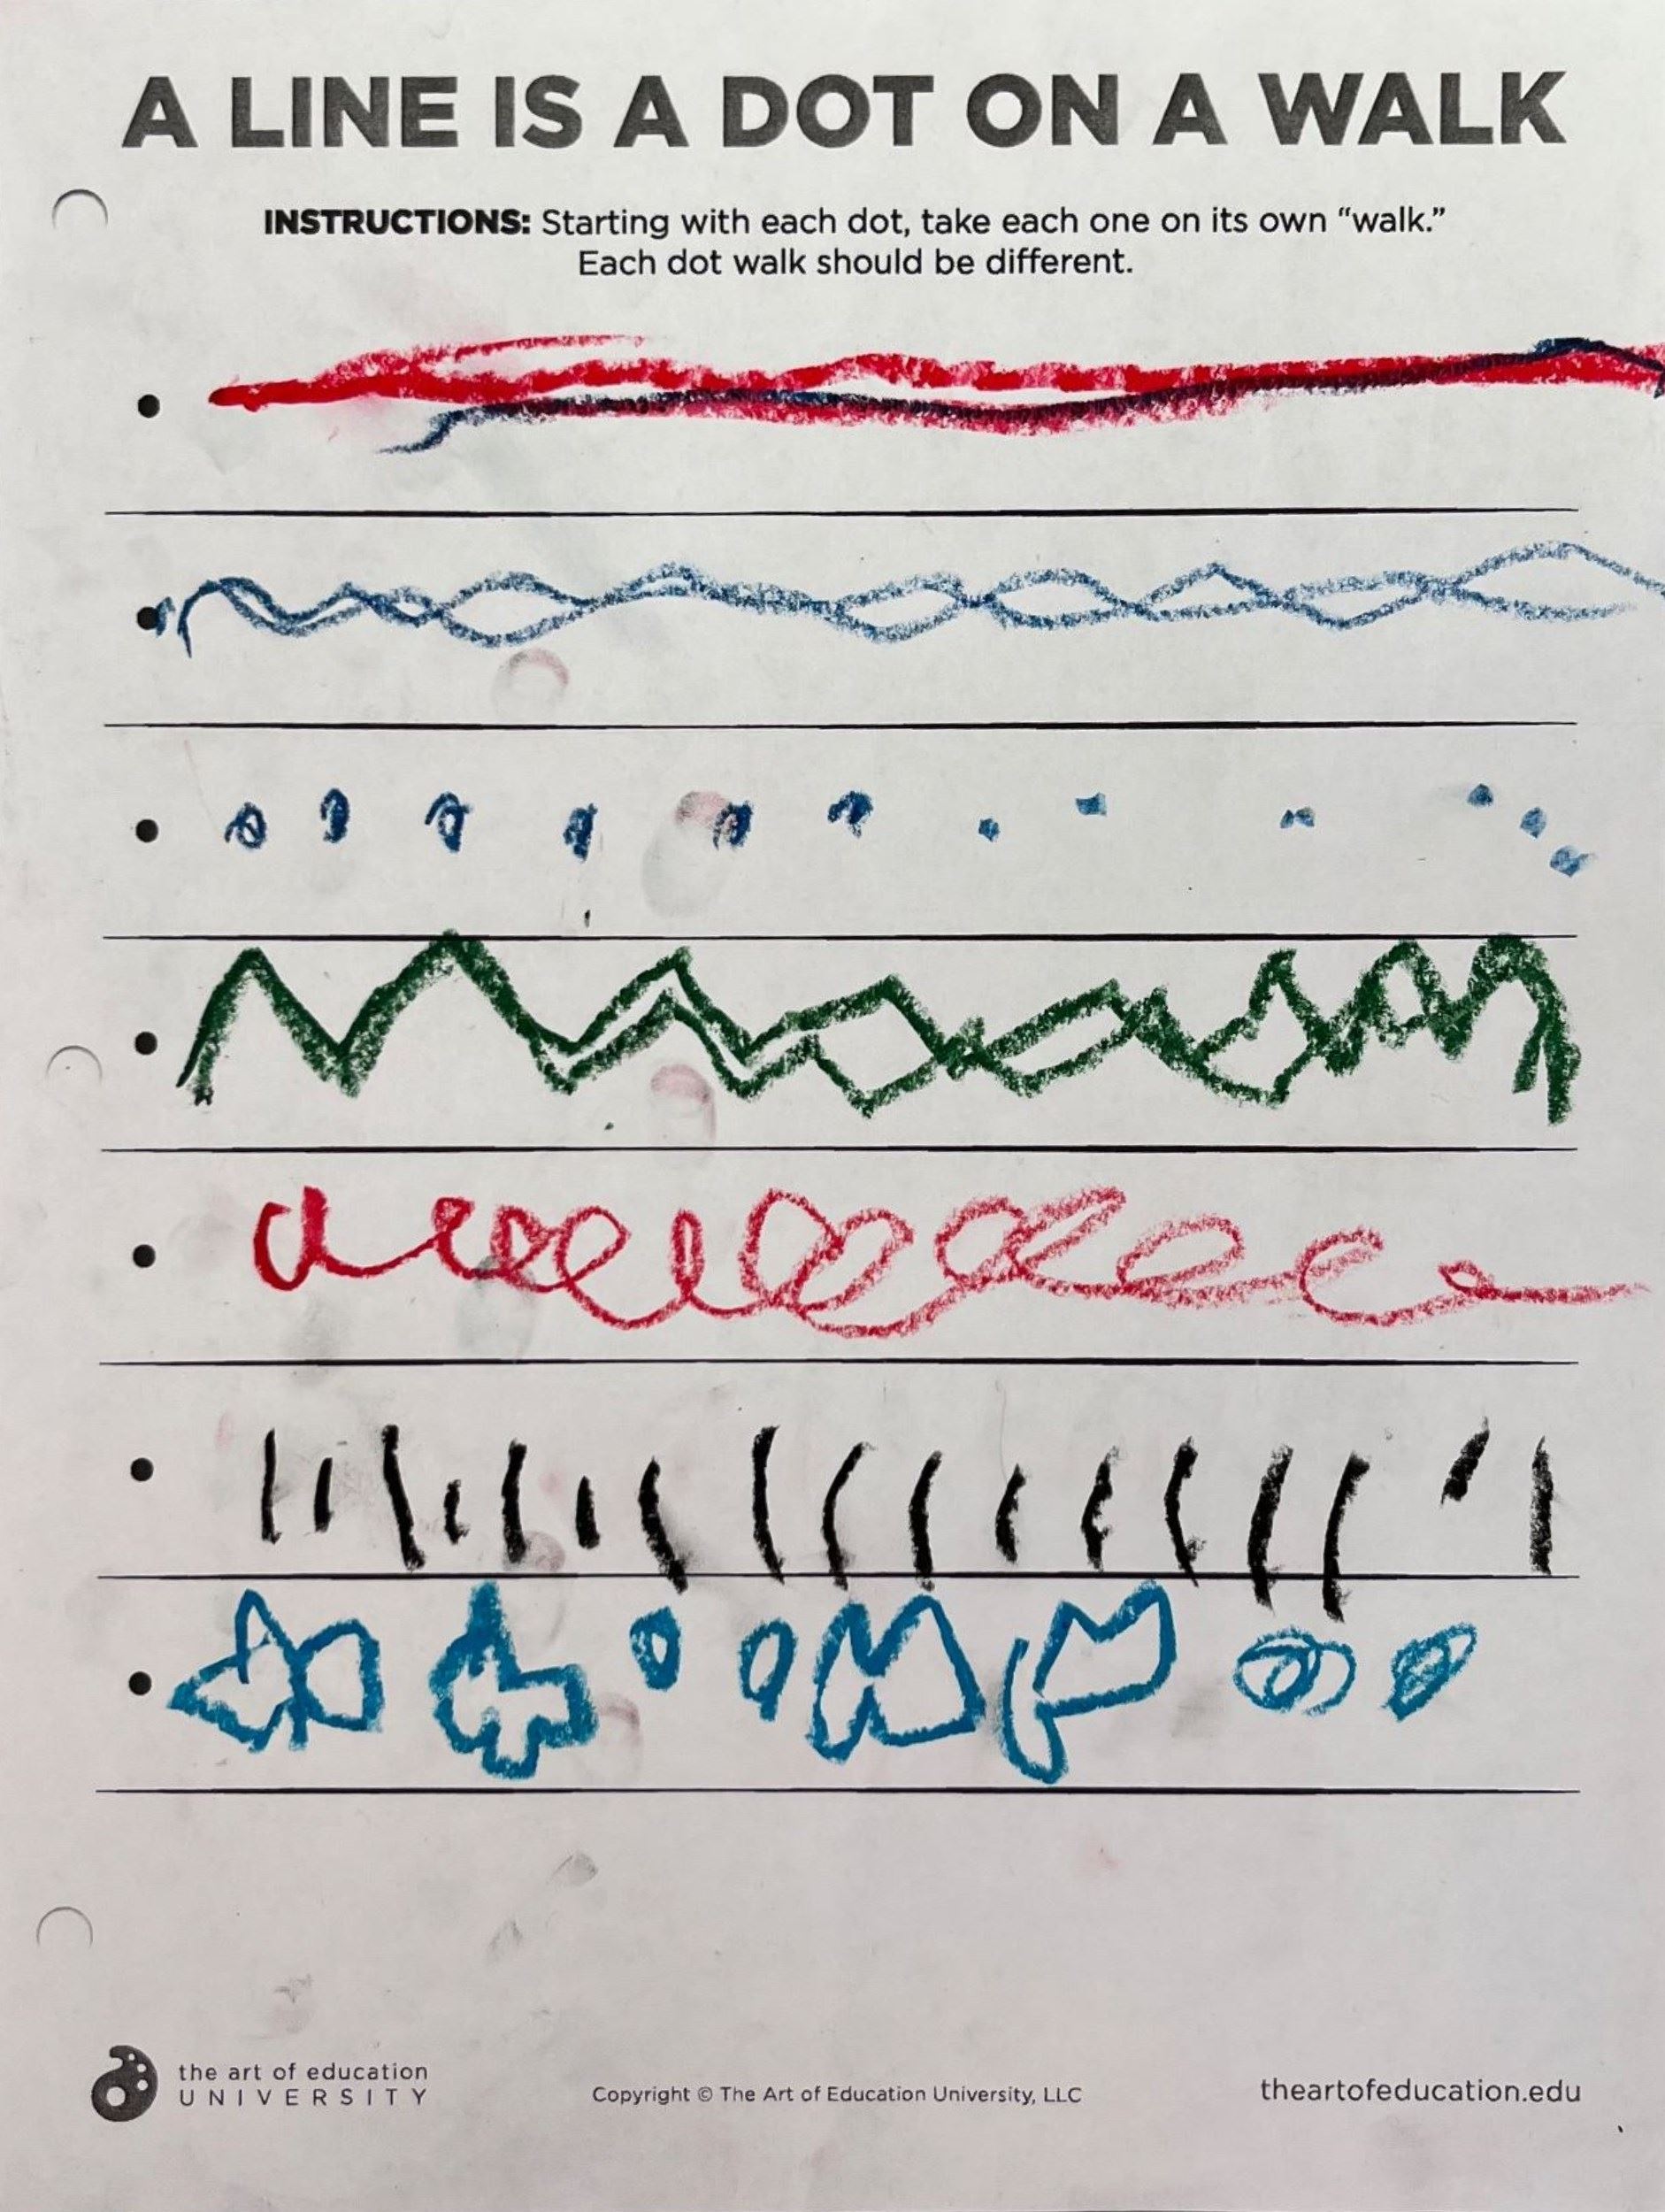 A LINE IS A DOT ON A WALK
INSTRUCTIONS: Starting with each dot, take each one on its own “walk.”
Each dot walk should be different.
the art of education
UNIVERSITY
Copyright © The Art of Education University, LLC
theartofeducation.edu